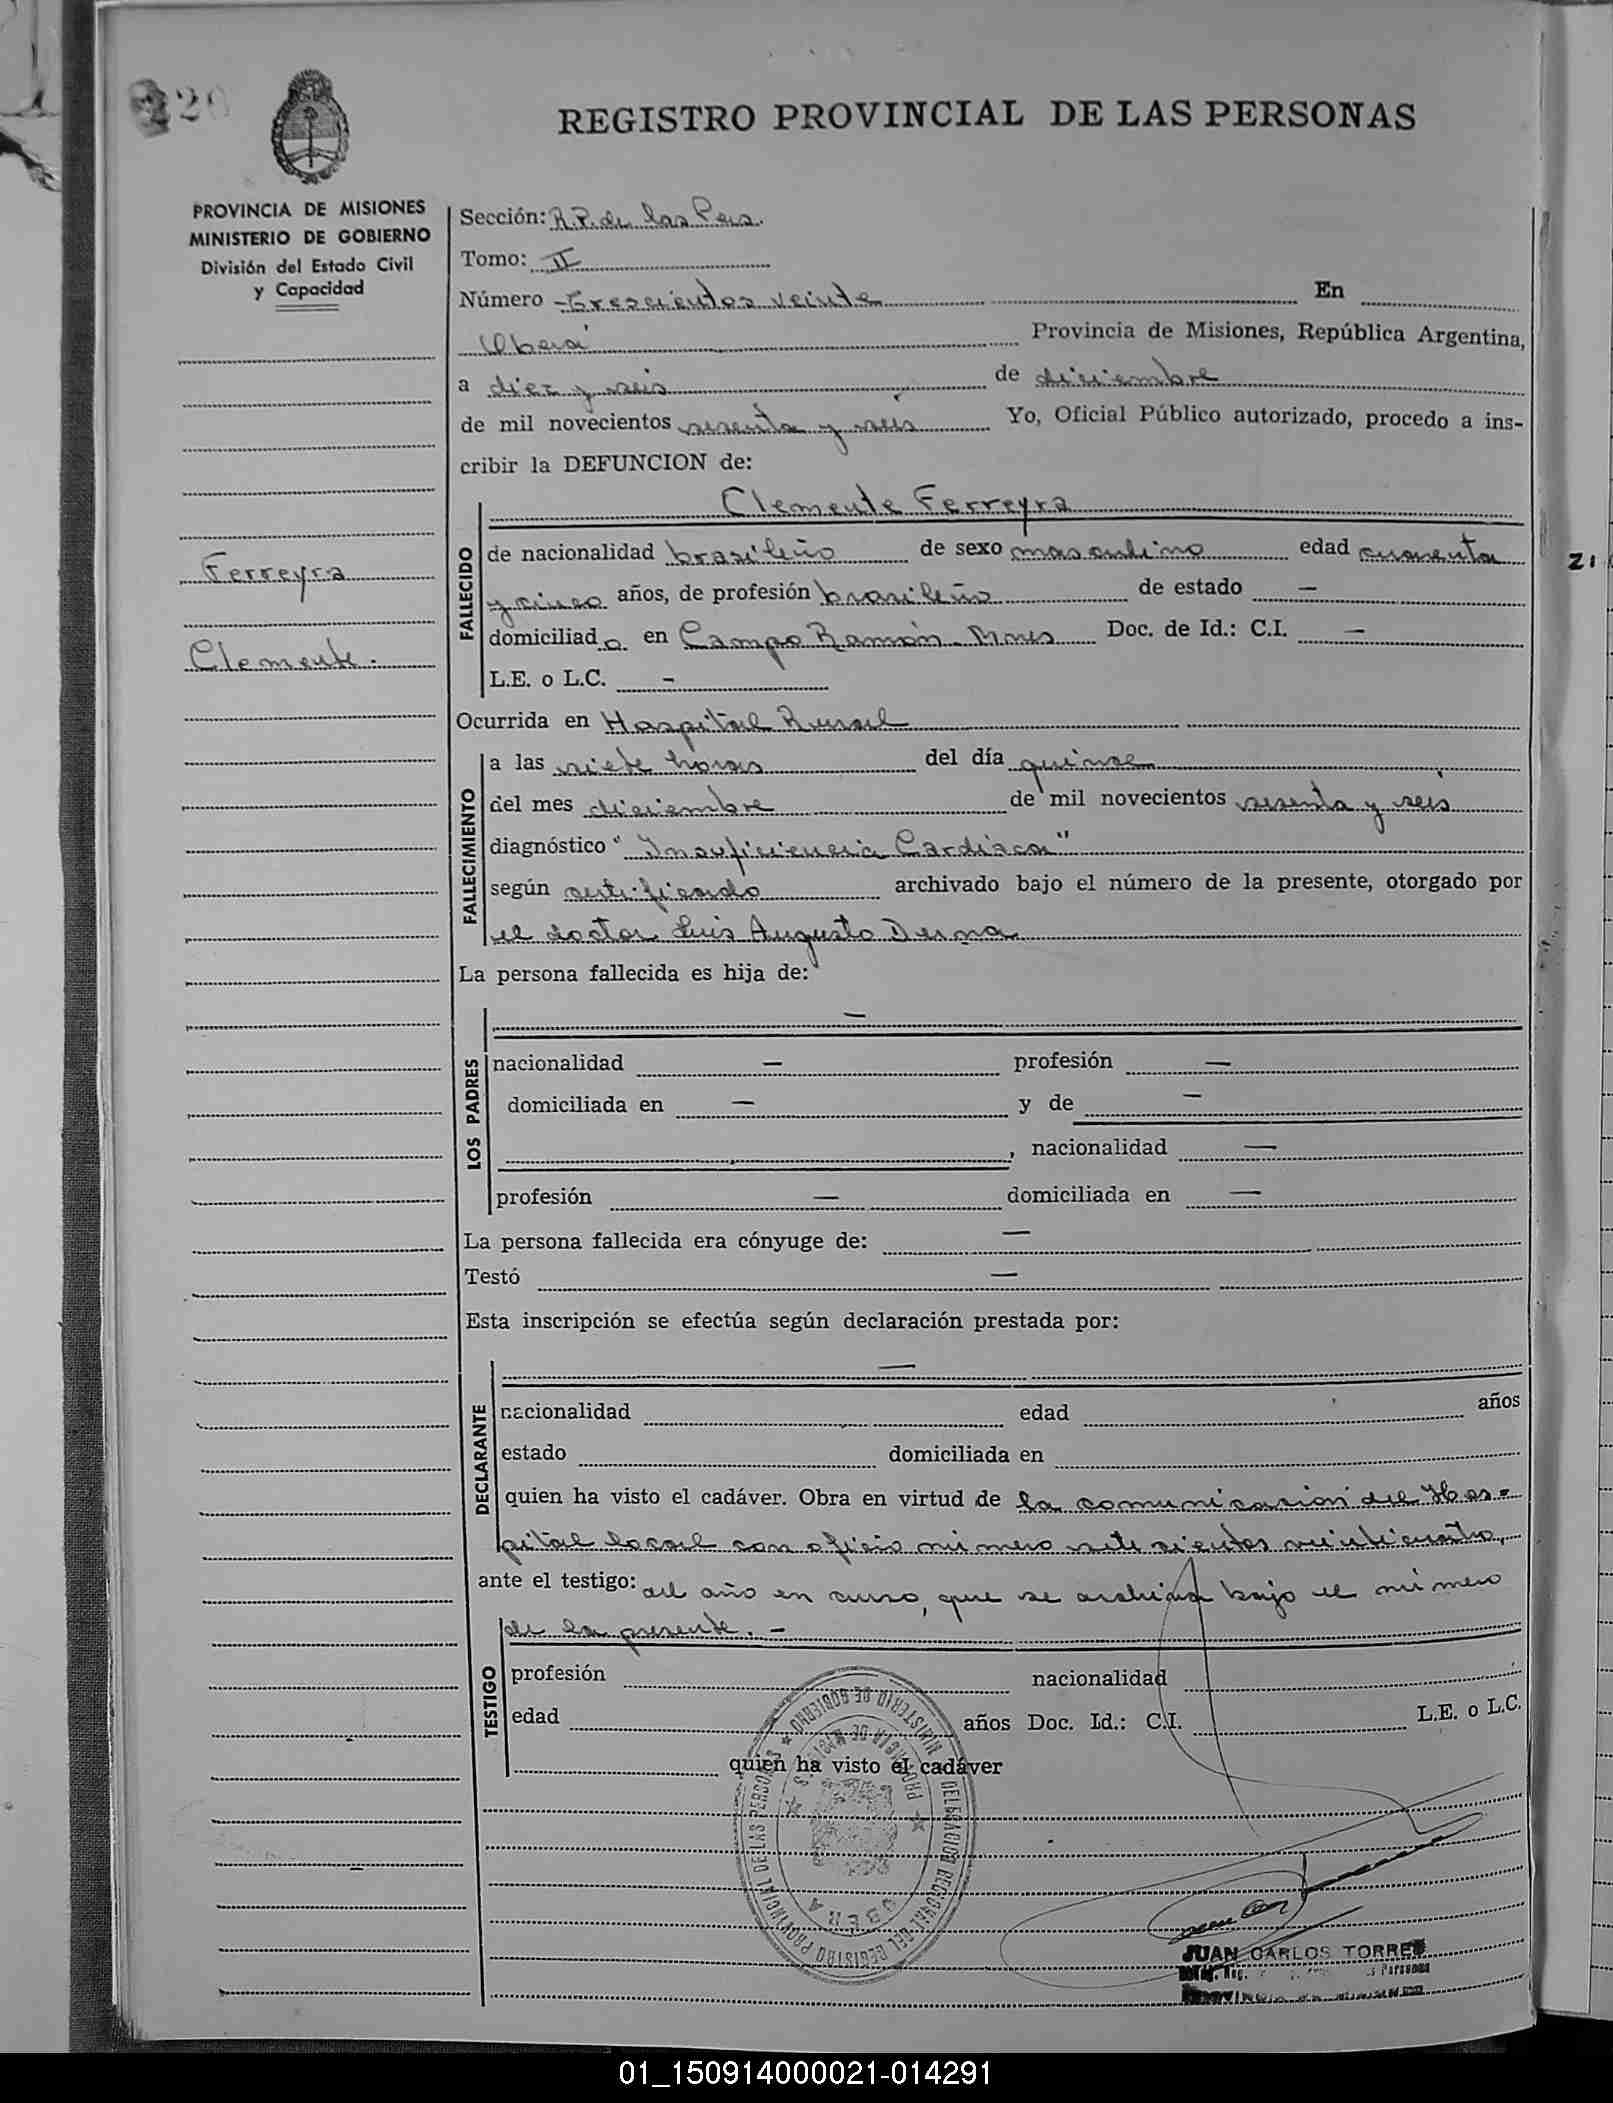 320
REGISTRO PROVINCIAL DE LAS PERSONAS
PROVINCIA DE MISIONES
MINISTERIO DE GOBIERNO
División del Estado Civil
y Capacidad
Ferreyra
Clemente.
Sección: R.P. de las Pers.
Tomo: II
Número -Trescientos veinte En
Oberá Provincia de Misiones, República Argentina,
a diez y seis de diciembre
de mil novecientos sesenta y seis Yo, Oficial Público autorizado, procedo a ins-
cribir la DEFUNCION de:
Clemente Ferreyra
FALLECIDO
de nacionalidad brasileño de sexo masculino edad cuarenta
y cinco años, de profesión brasileño de estado —
domiciliado en Campo Ramón Mnes Doc. de Id.: C.I. —
L.E. o L.C. -
Ocurrida en Hospital Rural
FALLECIMIENTO
a las siete horas del día quince
del mes diciembre de mil novecientos sesenta y seis
diagnóstico "Insuficiencia Cardiaca"
según certificado archivado bajo el número de la presente, otorgado por
el doctor Luis Augusto Derna
La persona fallecida es hija de:
—
LOS PADRES
nacionalidad — profesión —
domiciliada en — y de —
, nacionalidad —
profesión — domiciliada en —
La persona fallecida era cónyuge de: —
Testó —
Esta inscripción se efectúa según declaración prestada por:
—
DECLARANTE
nacionalidad edad años
estado domiciliada en
quien ha visto el cadáver. Obra en virtud de la comunicacion del Hos=
pital local con oficio número setecientos veinticuatro,
ante el testigo: del año en curso, que se archiva bajo el número
de la presente. -
TESTIGO
profesión nacionalidad
edad años Doc. Id.: C.I. L.E. o L.C.
quien ha visto el cadáver
MINISTERIO DE GOBIERNO
PROVINCIA DE MISIONES
DELEGACION REGIONAL DEL REGISTRO PROVINCIAL DE LAS PERSONAS
OBERA
JUAN CARLOS TORRES
Reg. Personas
21
01_150914000021-014291